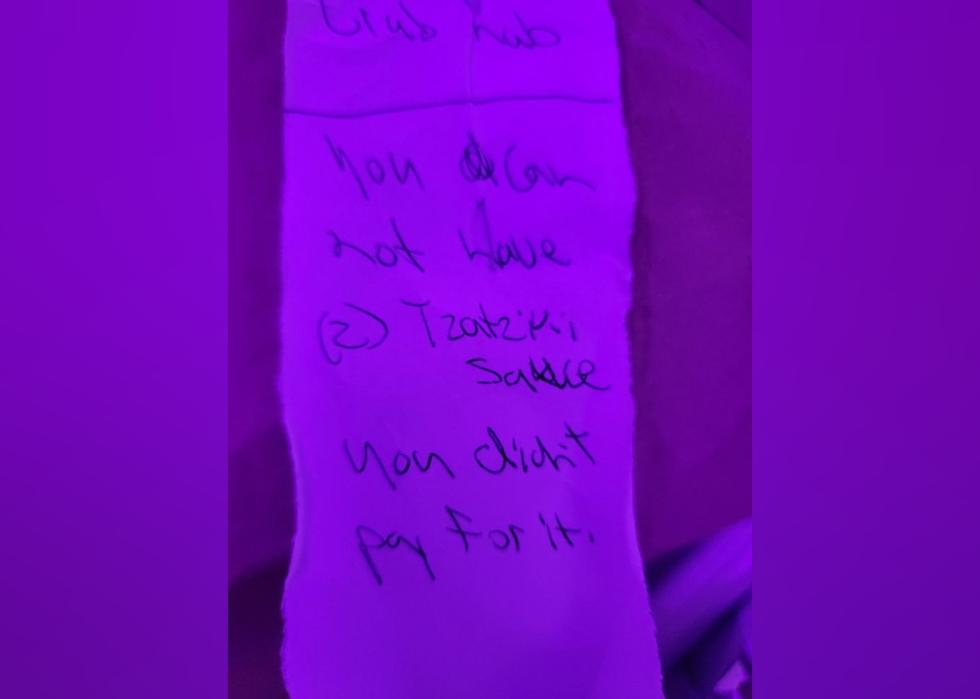 Grub hub
you can
not have
(2) Tzatziki
Sauce
you didn't
pay for it.